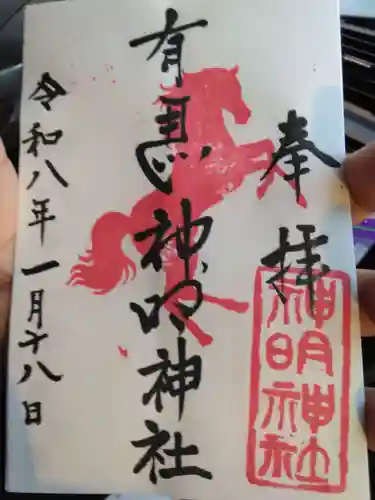 奉拝
神明神社
有馬神明神社
令和八年一月十八日